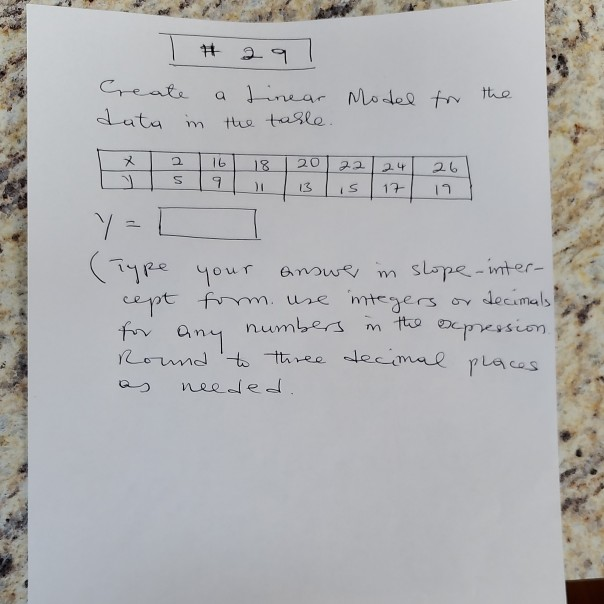 # 29
Create a Linear Model for the
data in the table.
x 2 16 18 20 22 24 26
y 5 9 11 13 15 17 19
y =
(Type your answer in slope-inter-
cept form. use integers or decimals
for any numbers in the expression
Round to three decimal places
as needed.